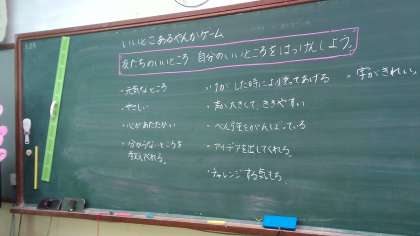 いいとこあるやんかゲーム
友だちのいいところ 自分のいいところをはっけんしよう。
・元気なところ
・やさしい
・心があたたかい
・分からないところを教えてくれる。
・けがした時によりそってあげる
・声が大きくて、ききやすい
・べん強をがんばっている
・アイデアを出してくれる。
・チャレンジする気もち
・字がきれい。